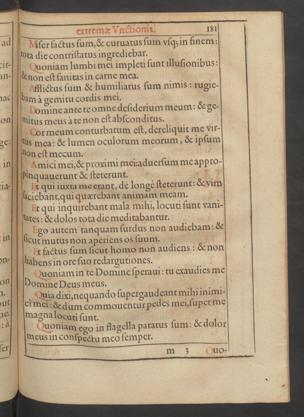 extremæ Vnctionis. 181
Miser factus sum, & curuatus sum vsq; in finem:
tota die contristatus ingrediebar.
Quoniam lumbi mei impleti sunt illusionibus:
& non est sanitas in carne mea.
Afflictus sum & humiliatus sum nimis: rugie-
bam à gemitu cordis mei.
Domine ante te omne desiderium meum: & ge-
mitus meus à te non est absconditus.
Cor meum conturbatum est, dereliquit me vir-
tus mea: & lumen oculorum meorum, & ipsum
non est mecum.
Amici mei, & proximi mei: aduersum me appro-
pinquauerunt & steterunt.
Et qui iuxta me erant, de longè steterunt: & vim
faciebant, qui quærebant animam meam.
Et qui inquirebant mala mihi, locuti sunt vani-
tates: & dolos tota die meditabantur.
Ego autem tanquam surdus non audiebam: &
sicut mutus non aperiens os suum.
Et factus sum sicut homo non audiens: & non
habens in ore suo redargutiones.
Quoniam in te Domine speraui: tu exaudies me
Domine Deus meus.
Quia dixi, nequando supergaudeant mihi inimi-
ci mei: & dum commouentur pedes mei, super me
magna locuti sunt.
Quoniam ego in flagella paratus sum: & dolor
meus in conspectu meo semper.
m 3 Quo-